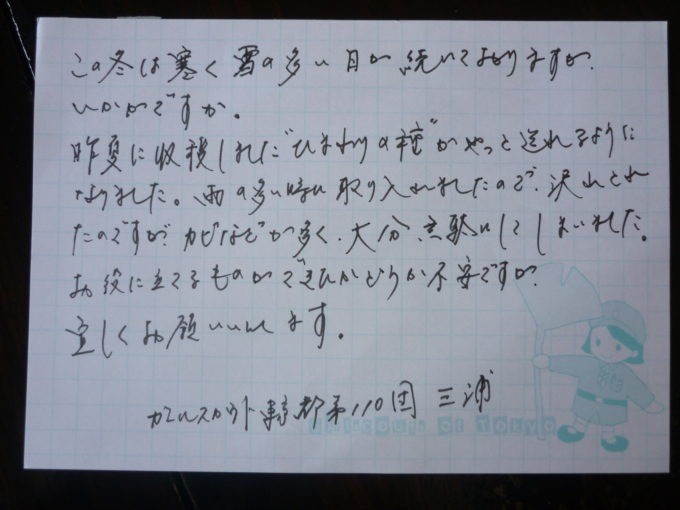 この冬は寒く雪の多い日が続いておりますが、
いかがですか。
昨夏に収穫しました"ひまわりの種"がやっと送れるように
なりました。雨の多い時に取り入れましたので、沢山とれ
たのですが、カビなどが多く、大分、無駄にしてしまいました。
お役に立てるものがかどうか不安ですが、
宜しくお願いします。
ガールスカウト東京都第110団 三浦
Girl Scouts of Tokyo